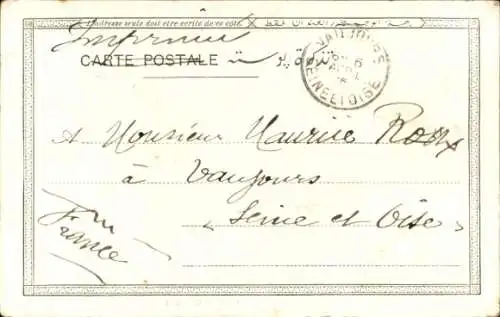 L'adresse seule doit être écrite de ce côté
Imprimé
CARTE POSTALE
VAUJOURS
SEINE ET OISE
A Monsieur Maurice Roux
à Vaujours
Seine et Oise
France